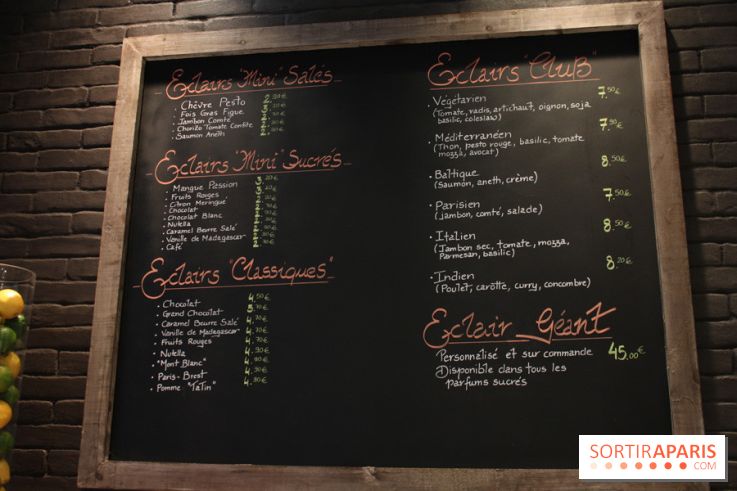 Eclairs "Mini" Salés
Chèvre Pesto
Fois Gras Figue
Jambon Comté
Chorizo Tomate Confite
Saumon Aneth
Eclairs "Mini" Sucrés
Mangue Passion
Fruits Rouges
Citron Meringué
Chocolat
Chocolat Blanc
Nutella
Caramel Beurre Salé
Vanille de Madagascar
Café
Eclairs "Classiques"
Chocolat 4.50€
Grand Chocolat 5.70€
Caramel Beurre Salé 4.70€
Vanille de Madagascar 4.70€
Fruits Rouges 4.70€
Nutella 4.90€
"Mont Blanc" 4.90€
Paris-Brest 4.90€
Pomme "Tatin" 4.80€
Eclairs "Club"
Végétarien 7.50€
(Tomate, radis, artichaut, oignon, soja
basilic, coleslaw)
Méditerranéen 7.90€
(Thon, pesto rouge, basilic, tomate
mozza, avocat)
Baltique 8.50€
(Saumon, aneth, crème)
Parisien 7.50€
(jambon, comté, salade)
Italien 8.50€
(Jambon sec, tomate, mozza,
Parmesan, basilic)
Indien 8.20€
(Poulet, carotte, curry, concombre)
Eclair Géant
Personnalisé et sur commande 45.00€
Disponible dans tous les
parfums sucrés
SORTIRAPARIS
.COM